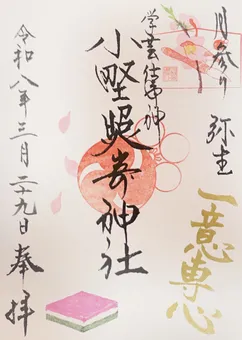 月参り
弥生
一意専心
学芸仕事神
小野照崎神社
令和八年三月二十九日奉拝